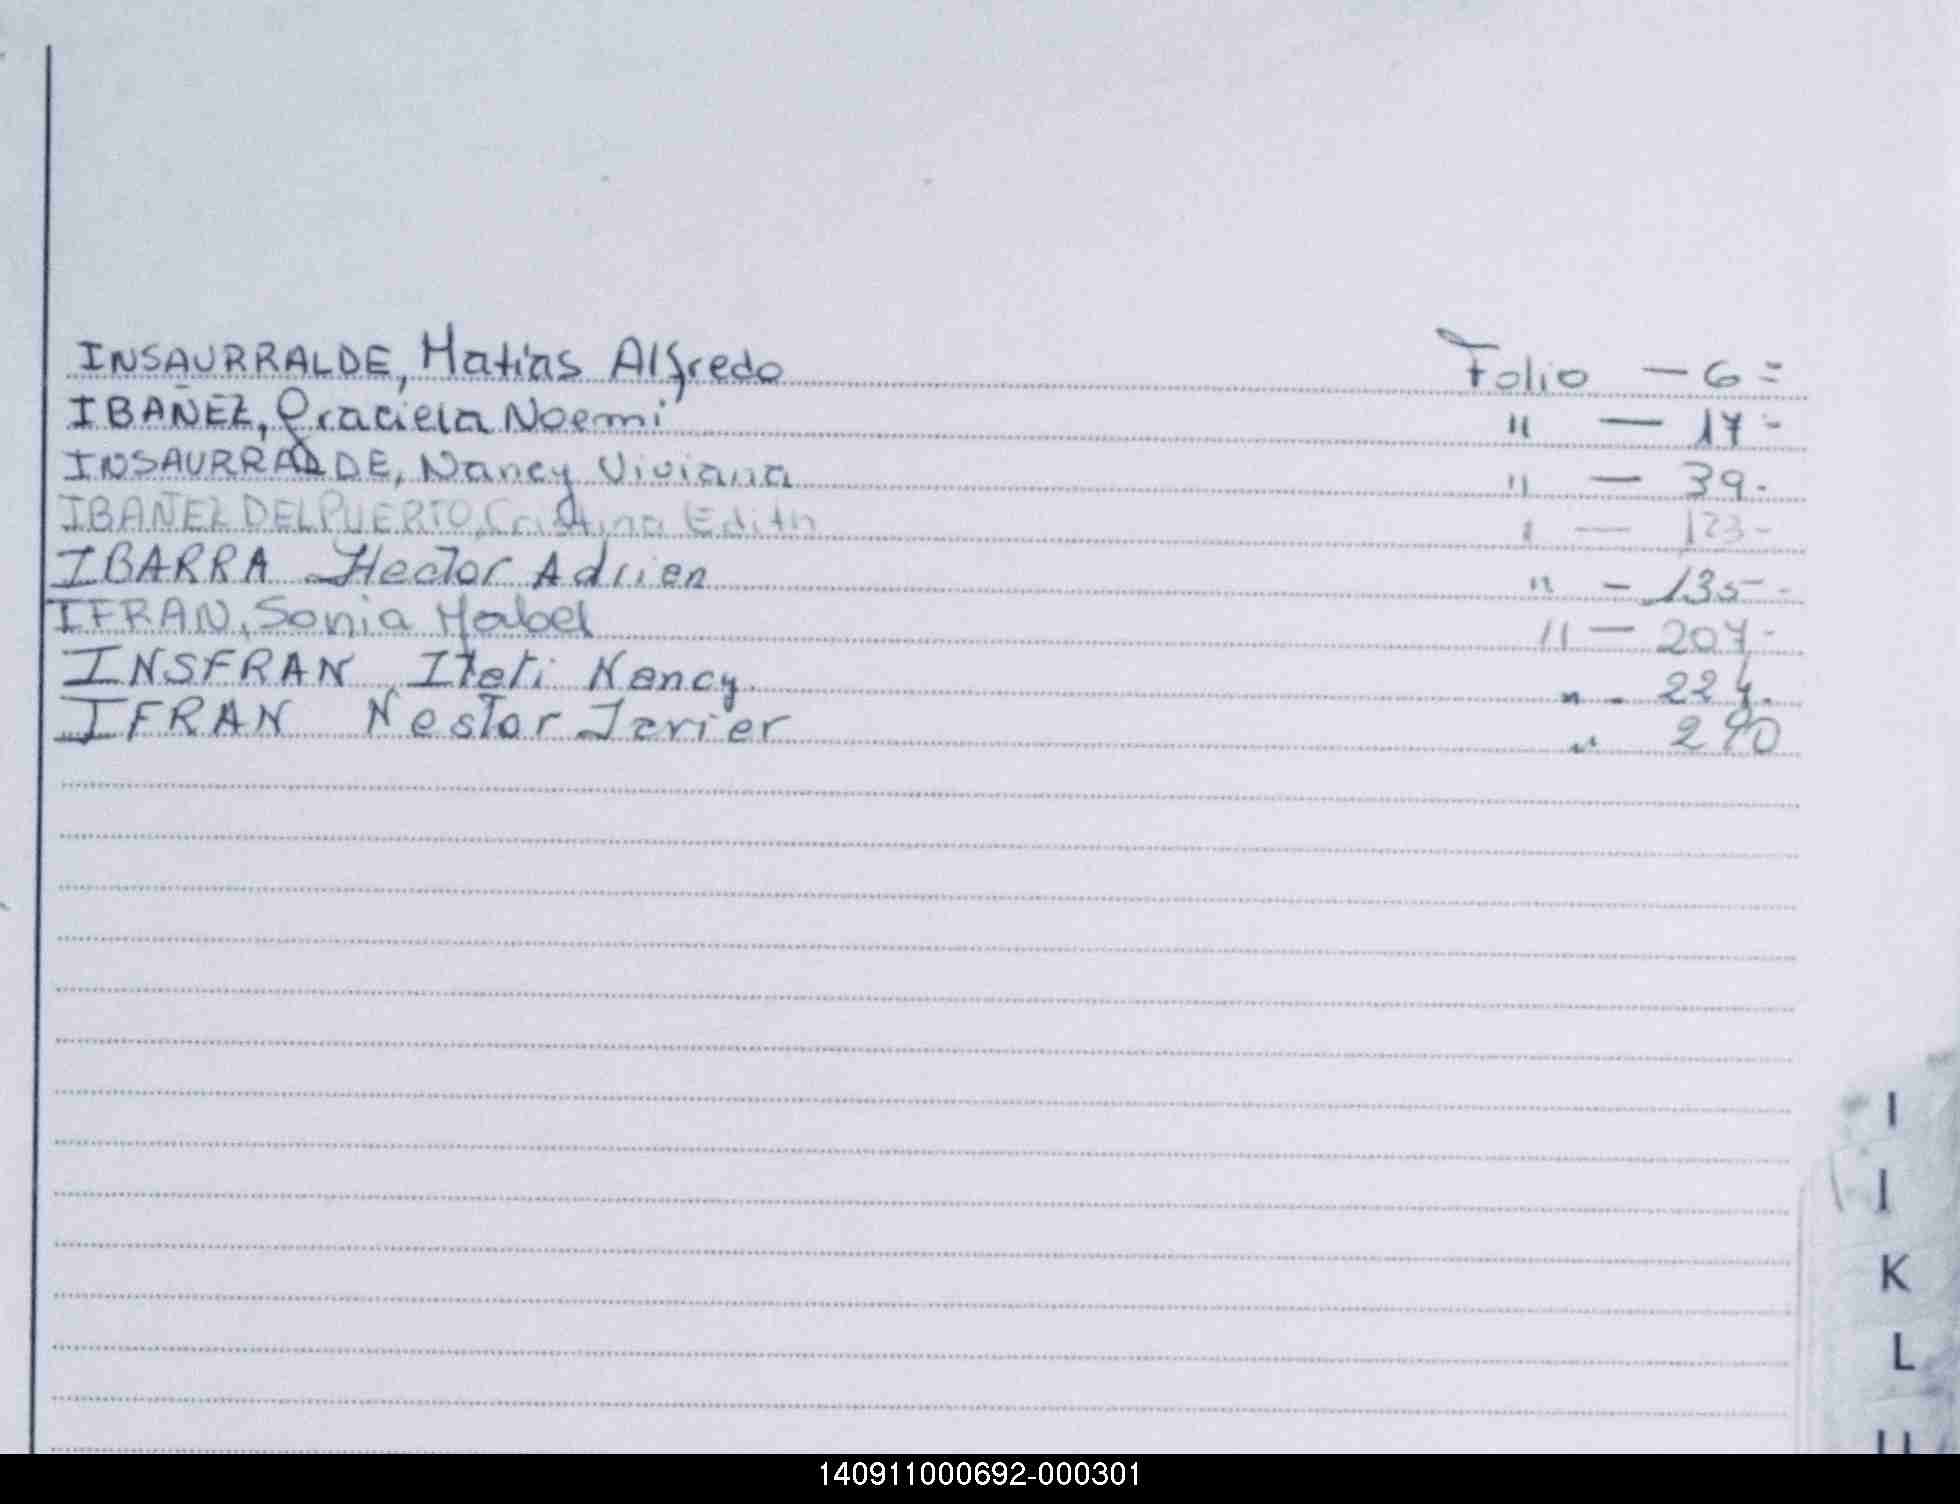 INSAURRALDE, Matias Alfredo Folio — 6 =
IBAÑEZ, Graciela Noemi " — 17 -
INSAURRALDE, Nancy Viviana " — 39.
IBAÑEZ DEL PUERTO, Cristina Edith " — 123 -
IBARRA Hector Adrien " — 135 -
IFRAN, Sonia Mabel " — 207 -
INSFRAN Itati Nancy. " - 224.
IFRAN Nestor Javier " 290
I
J
K
L
140911000692-000301